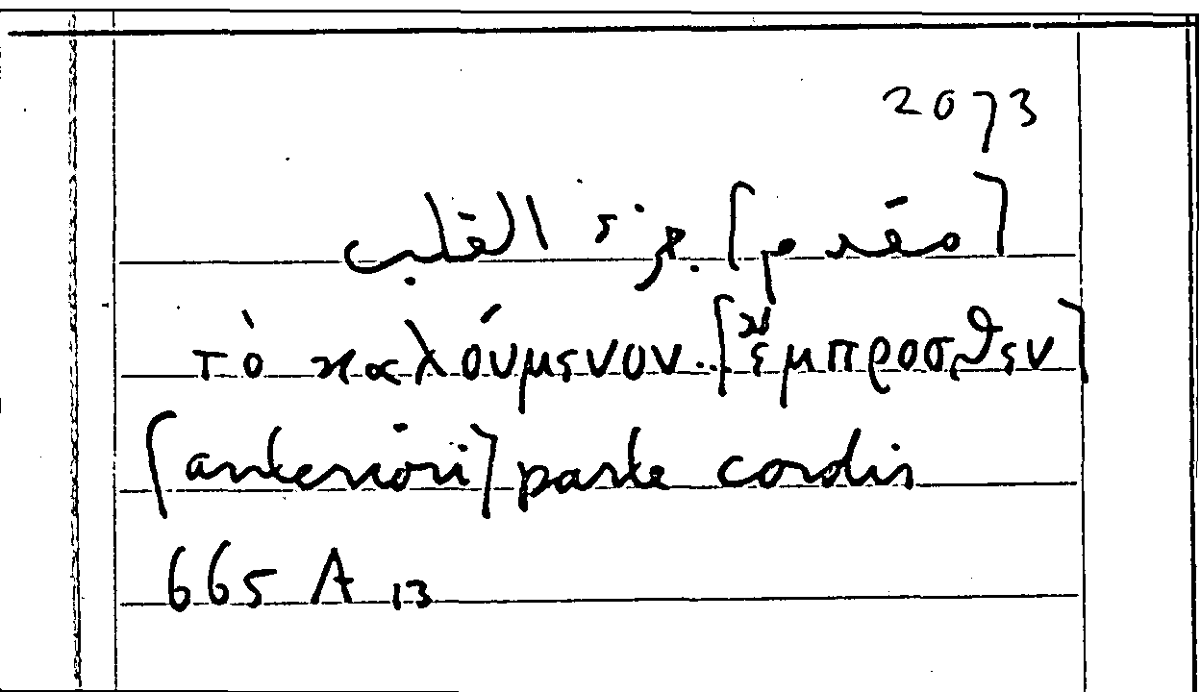 2073
[مقدم] جزء القلب
τὸ καλούμενον [ἔμπροσθεν]
[anteriori] parte cordis
665 A 13